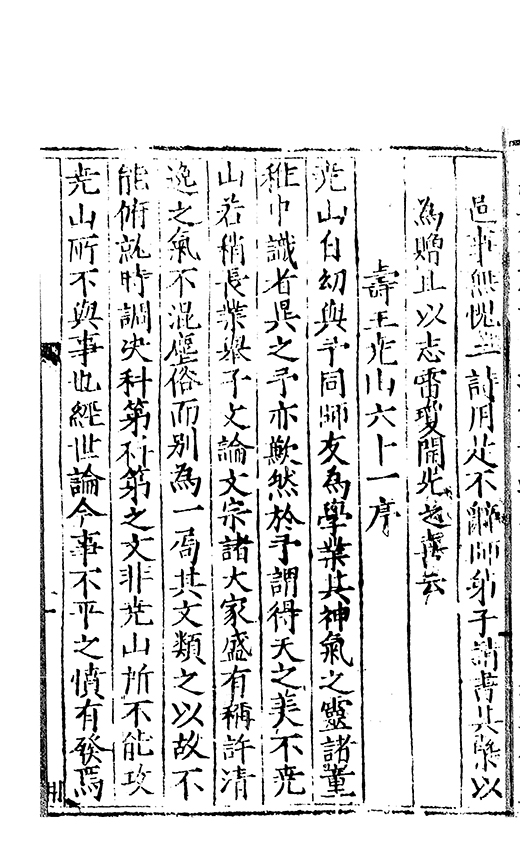 邑事無愧三詩用是不辭師弟子請書其槩以
為贈且以志雷瓊開先之
壽王尭山六十一序
尭山自幼與予同師友為學業其神氣之靈諸童
稚中識者異之予亦歉然於予謂得天之美不尭
山若稍長業舉子文論文宗諸大家盛有稱許清
逸之氣不混塵俗而别為一局其文類之以故不
能俯就時調决科第科第之文非尭山所不能攻
尭山所不與事也經世論今事不平之憤有發焉